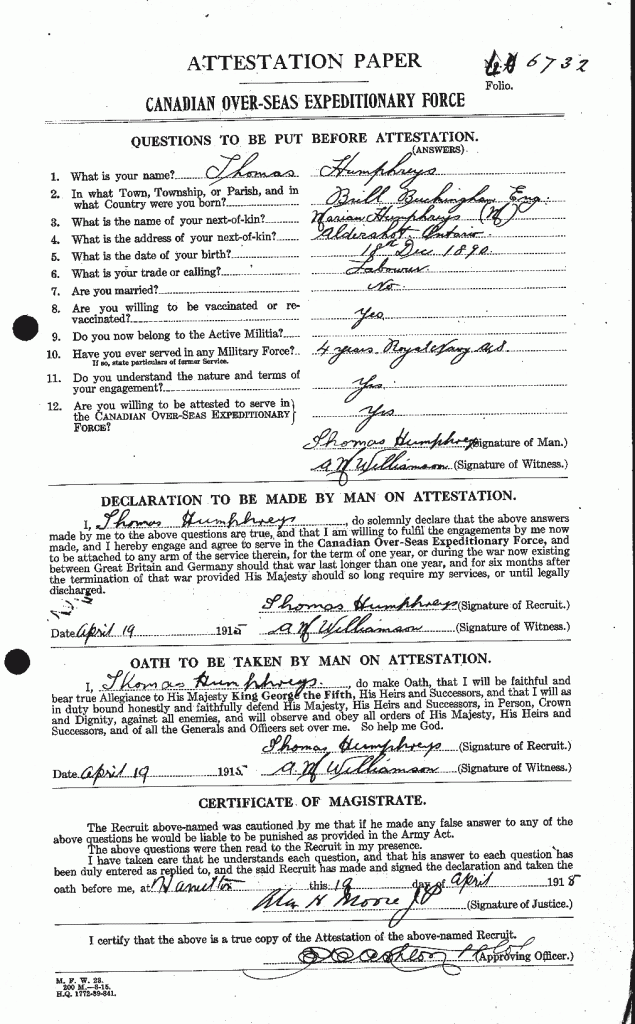 ATTESTATION PAPER
6732
Folio.
CANADIAN OVER-SEAS EXPEDITIONARY FORCE
QUESTIONS TO BE PUT BEFORE ATTESTATION.
(ANSWERS)
1. What is your name? Thomas Humphreys
2. In what Town, Township, or Parish, and in
what Country were you born? Brill Buckingham Eng.
3. What is the name of your next-of-kin? Marian Humphreys (M)
4. What is the address of your next-of-kin? Aldershot. Ontario.
5. What is the date of your birth? 18th Dec. 1890
6. What is your trade or calling? Labourer
7. Are you married? No
8. Are you willing to be vaccinated or re-
vaccinated? Yes
9. Do you now belong to the Active Militia?
10. Have you ever served in any Military Force? 4 years. Royal Navy
If so, state particulars of former Service.
11. Do you understand the nature and terms of
your engagement? Yes
12. Are you willing to be attested to serve in
the CANADIAN OVER-SEAS EXPEDITIONARY Yes
FORCE?
Thomas Humphreys (Signature of Man.)
A W Williamson (Signature of Witness.)
DECLARATION TO BE MADE BY MAN ON ATTESTATION.
I, Thomas Humphreys, do solemnly declare that the above answers
made by me to the above questions are true, and that I am willing to fulfil the engagements by me now
made, and I hereby engage and agree to serve in the Canadian Over-Seas Expeditionary Force, and
to be attached to any arm of the service therein, for the term of one year, or during the war now existing
between Great Britain and Germany should that war last longer than one year, and for six months after
the termination of that war provided His Majesty should so long require my services, or until legally
discharged.
Thomas Humphreys (Signature of Recruit.)
Date April 19 1915 A W Williamson (Signature of Witness.)
OATH TO BE TAKEN BY MAN ON ATTESTATION.
I, Thomas Humphreys, do make Oath, that I will be faithful and
bear true Allegiance to His Majesty King George the Fifth, His Heirs and Successors, and that I will as
in duty bound honestly and faithfully defend His Majesty, His Heirs and Successors, in Person, Crown
and Dignity, against all enemies, and will observe and obey all orders of His Majesty, His Heirs and
Successors, and of all the Generals and Officers set over me. So help me God.
Thomas Humphreys (Signature of Recruit.)
Date April 19 1915 A W Williamson (Signature of Witness.)
CERTIFICATE OF MAGISTRATE.
The Recruit above-named was cautioned by me that if he made any false answer to any of the
above questions he would be liable to be punished as provided in the Army Act.
The above questions were then read to the Recruit in my presence.
I have taken care that he understands each question, and that his answer to each question has
been duly entered as replied to, and the said Recruit has made and signed the declaration and taken the
oath before me, at Hamilton this 19 day of April 1915
Alex H Moore JP (Signature of Justice.)
I certify that the above is a true copy of the Attestation of the above-named Recruit.
(Approving Officer.)
M. F. W. 23.
200 M.—3-15.
H.Q. 1772-39-841.